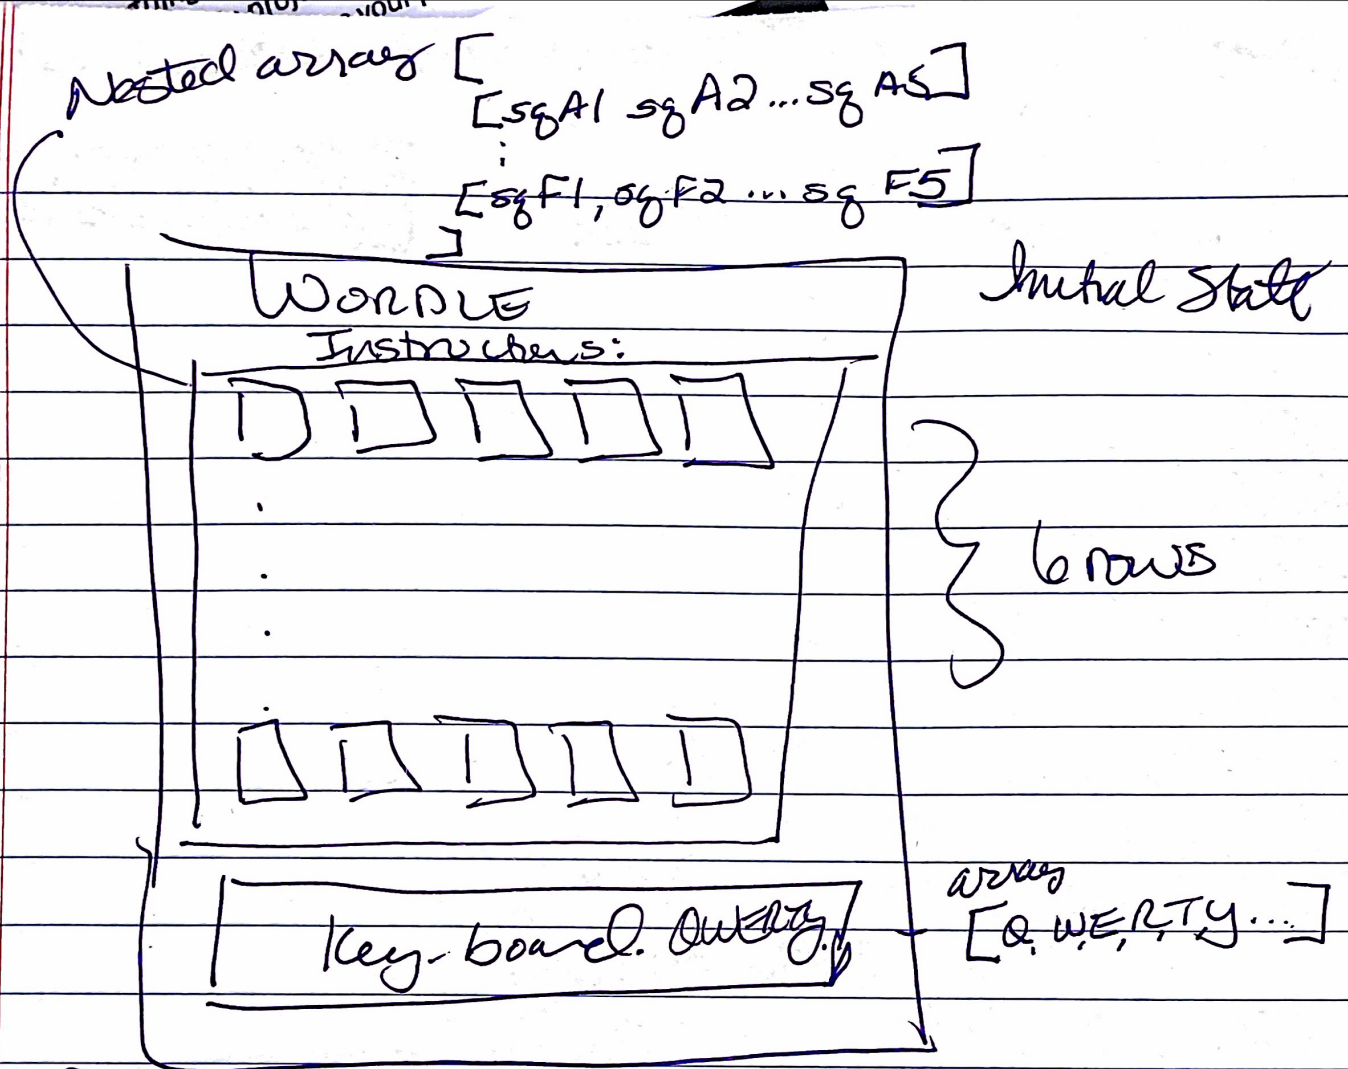 Nested array [
[sqA1 sqA2...sq A5]
:
[sqF1, sq F2 ... sq F5]
]
WORDLE
Initial State
Instructions:
6 rows
Key-board. QWERTY
array
[Q, W, E, R, T, Y...]